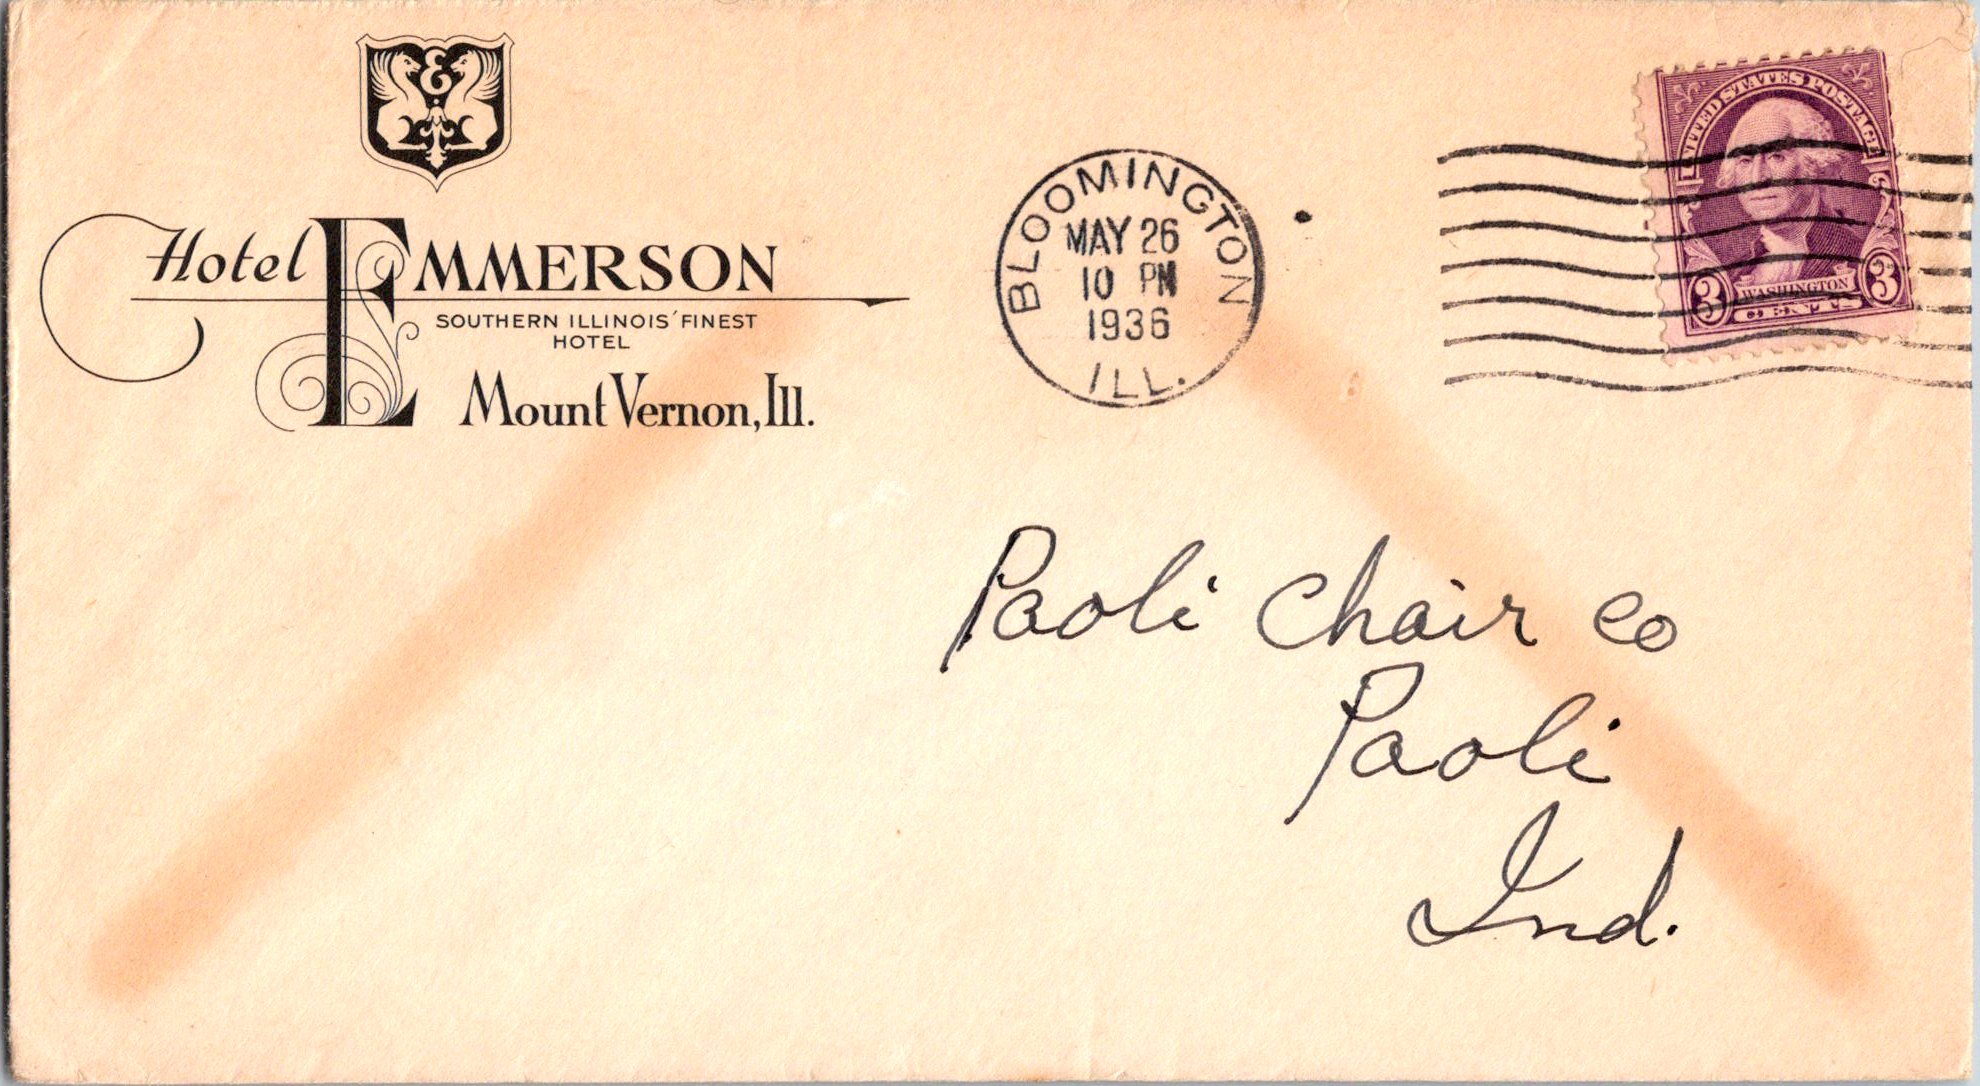 E
Hotel EMMERSON
SOUTHERN ILLINOIS' FINEST
HOTEL
Mount Vernon, Ill.
BLOOMINGTON
MAY 26
10 PM
1936
ILL.
UNITED STATES POSTAGE
3 WASHINGTON 3
Paoli Chair Co
Paoli
Ind.